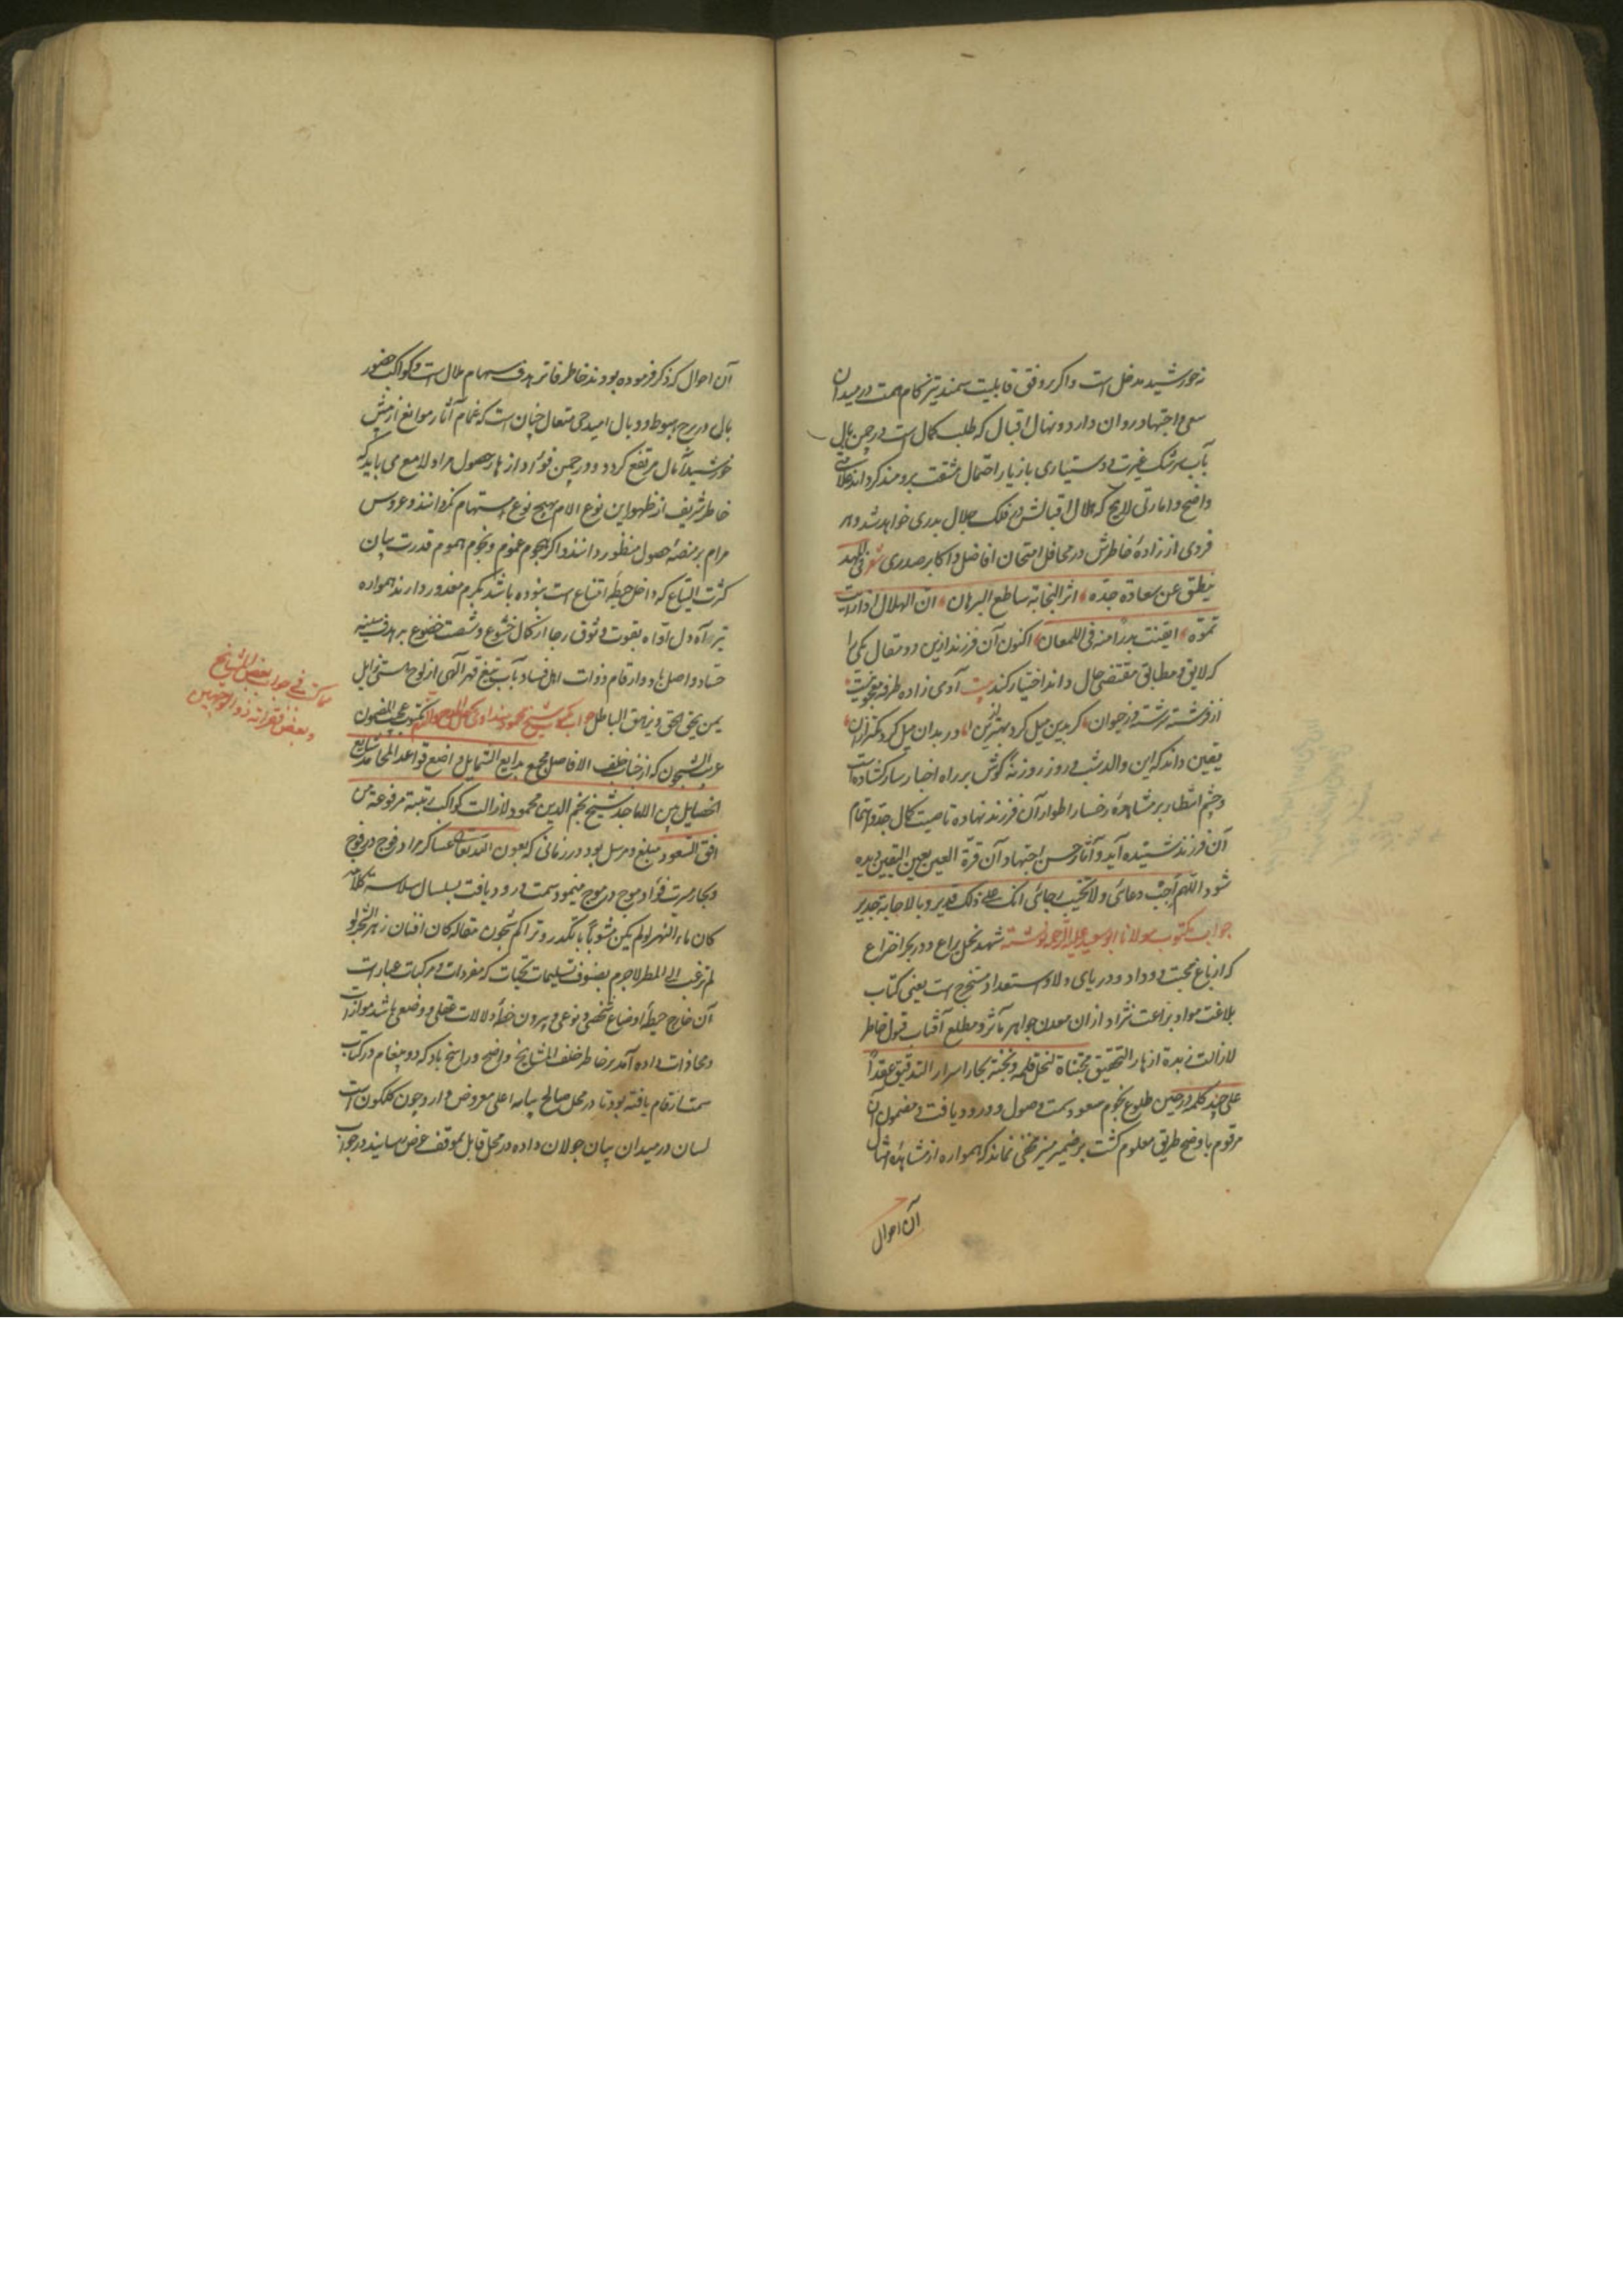 نه خورشید مدخل است و اگر بر وفق قابلیت سمند تیز کام همت در میدان
سعی و اجتهاد روان دارد و نهال اقبال که طلب کمال است در چمن بال
بآب سرشک غیرت و دستیاری بازیار احتمال مشقت برومند کرداند علامتی
واضح و امارتی لایح که هلال اقبالش در فلک جلال بدری خواهد شد و هر
فردی از زادهٔ خاطرش در محافل امتحان افاضل و اکابر صدری شعر فی المهد
ینطق عن سعادة جده اثر النجابة ساطع البرهان ان الهلال اذا رایت
نموّه ایقنت بدرًا منه فی اللمعان اکنون آن فرزند ازین دو مقال یکی را
که لایق و مطابق مقتضی حال داند اختیار کند بیت آدمی زاده طرفه معجونیست
از فرشته سرشته وز حیوان گر بدین میل کرد به ازین ور بدان میل کرد کمتر ازان
یقین داند که این والد شب و روز روزنهٔ گوش بر راه اخبار سار کشاده است
و چشم انتظار بر مشاهدهٔ رخسار اطوار آن فرزند نهاده تا صیت کمال جد و اهتمام
آن فرزند شنیده آید و آثار حسن اجتهاد آن قرة العین بعین الیقین دیده
شود اللهم اجب دعائی ولا تخیب رجائی انک علی ذلک قدیر و بالاجابة جدیر
جواب مکتوب مولانا ابو سعید علیه الرحمه نوشته شهد نحل یراع و در بحر اختراع
که از باغ محبت و وداد و دریای ولا و استعداد مستخرج است یعنی کتاب
بلاغت مواد براعت نژاد از ان معدن جواهر مآثر و مطلع آفتاب قبول خاطر
لا زالت زبدة ازهار التحقیق مجتناة لنحل قلمه و نخبة بحار اسرار التدقیق عقدًا
علی جید کلمه در حین طلوع نجوم سعود سمت وصول و ورود یافت و مضمون آن
مرقوم باوضح طریق معلوم کشت بر ضمیر منیر مخفی نماند که همواره از مشاهدهٔ امثال
آن احوال
آن احوال که ذکر فرموده بودند خاطر فاتر هدف سهام ملال است و کواکب حضور
بال در برج هبوط و وبال امید حی متعال چنان است که غمام آثار موانع از پیش
خورشید آمال مرتفع کردد و در چمن فؤاد ازهار حصول مراد لامع می باید که
خاطر شریف از ظهور این نوع آلام بهیچ نوع مستهام نکردانند و عروس
مرام بر منصهٔ حصول منظور دانند و اگر هجوم غموم و نجوم هموم قدرت بیان
کثرت التیاع که داخل حیطهٔ اقتناع است نبوده باشد بکرم معذور دارند همواره
تیر آه دل اوّاه بقوت وثوق رجا از کمان خشوع و شست خضوع بر هدف سینه
حساد واصل باد و ارقام ذوات اهل فساد بآب تیغ قهر الهی از لوح هستی زایل
بمن یحق الحق و یزهق الباطل جواب مکتوب شیخ محمود مکتوب عجیب المضمون
غریب الشجون که از جناب خلف الافاضل مجمع بدایع الشمایل واضع قواعد المحامد شایع
الخصایل بین الاماجد شیخ نجم الدین محمود لا زالت کواکب رتبته مرفوعة من
افق السعود مبلغ و مرسل بود در زمانی که بعون الله تعالی عساکر مراد فوج در فوج
و بحار مسرت فؤاد موج در موج مینمود سمت ورود یافت بسلسال سلاسة کلام
کان ماء النهر لو لم یکن مشوبًا بالتکدر و تراکم شجون مقاله کان افنان زهر الشجر لو
لم ترغب الی المطر لاجرم بصنوف تسلیمات و تحیات که مفردات و مرکبات عبارات
آن خارج حیطهٔ اوضاع شخصی و نوعی و بیرون خطهٔ دلالات عقلی و وضعی باشد موازات
و محاذات داده آمد بر خاطر خلف المشایخ واضح و راسخ باد که دو پیغام در کتاب
سمت ارقام یافته بود تا در محل صالح بپایه اعلی معروض دارد چون گلگون است
لسان در میدان بیان جولان داده در محل قابل بموقف عرض رسانید در جواب
مما کتب فی جواب بعض المشایخ
و بعض فقراته ذو الوجهین